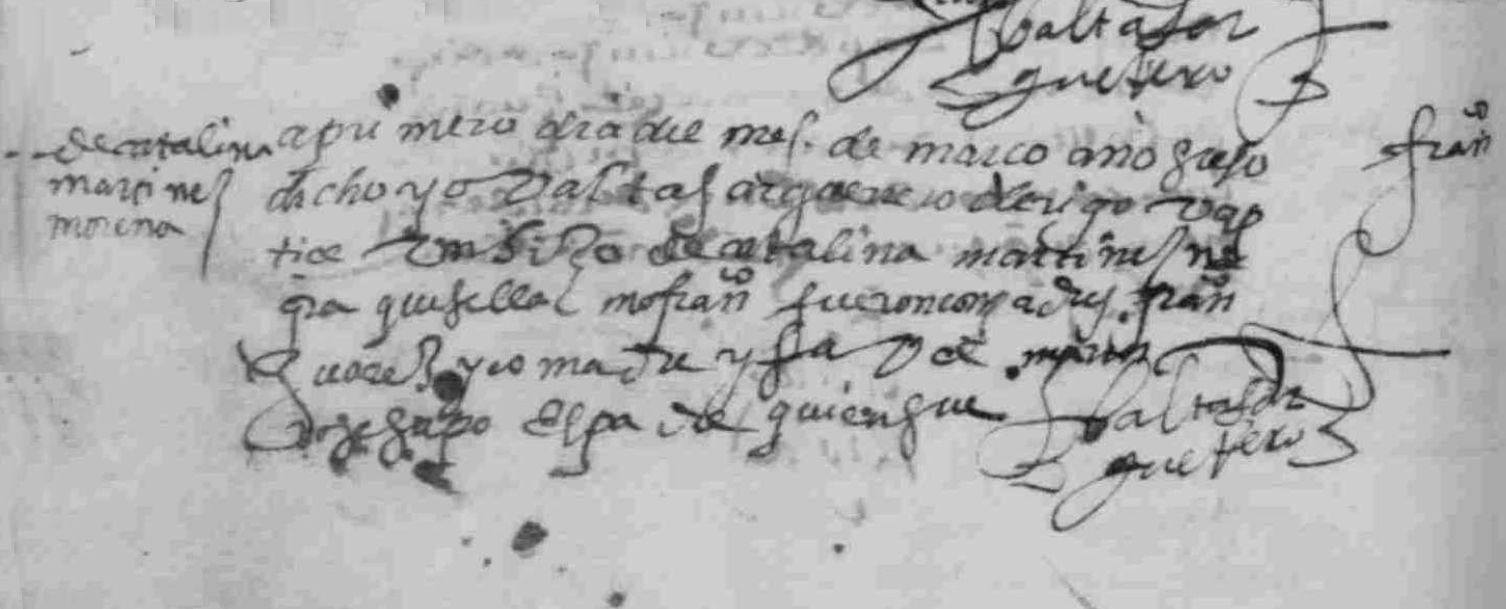 Baltasar
Guerrero
de catalina
martines
morena
a primero dia del mes de março año suso
dicho yo Valtasar guerrero clerigo vap
tice un hijo de catalina martines ne
gra que se llamo franco fueron compadres franco
Suares y comadre ysa Velez
no se supo el padre quien fue
franco
Baltasar
guerrero